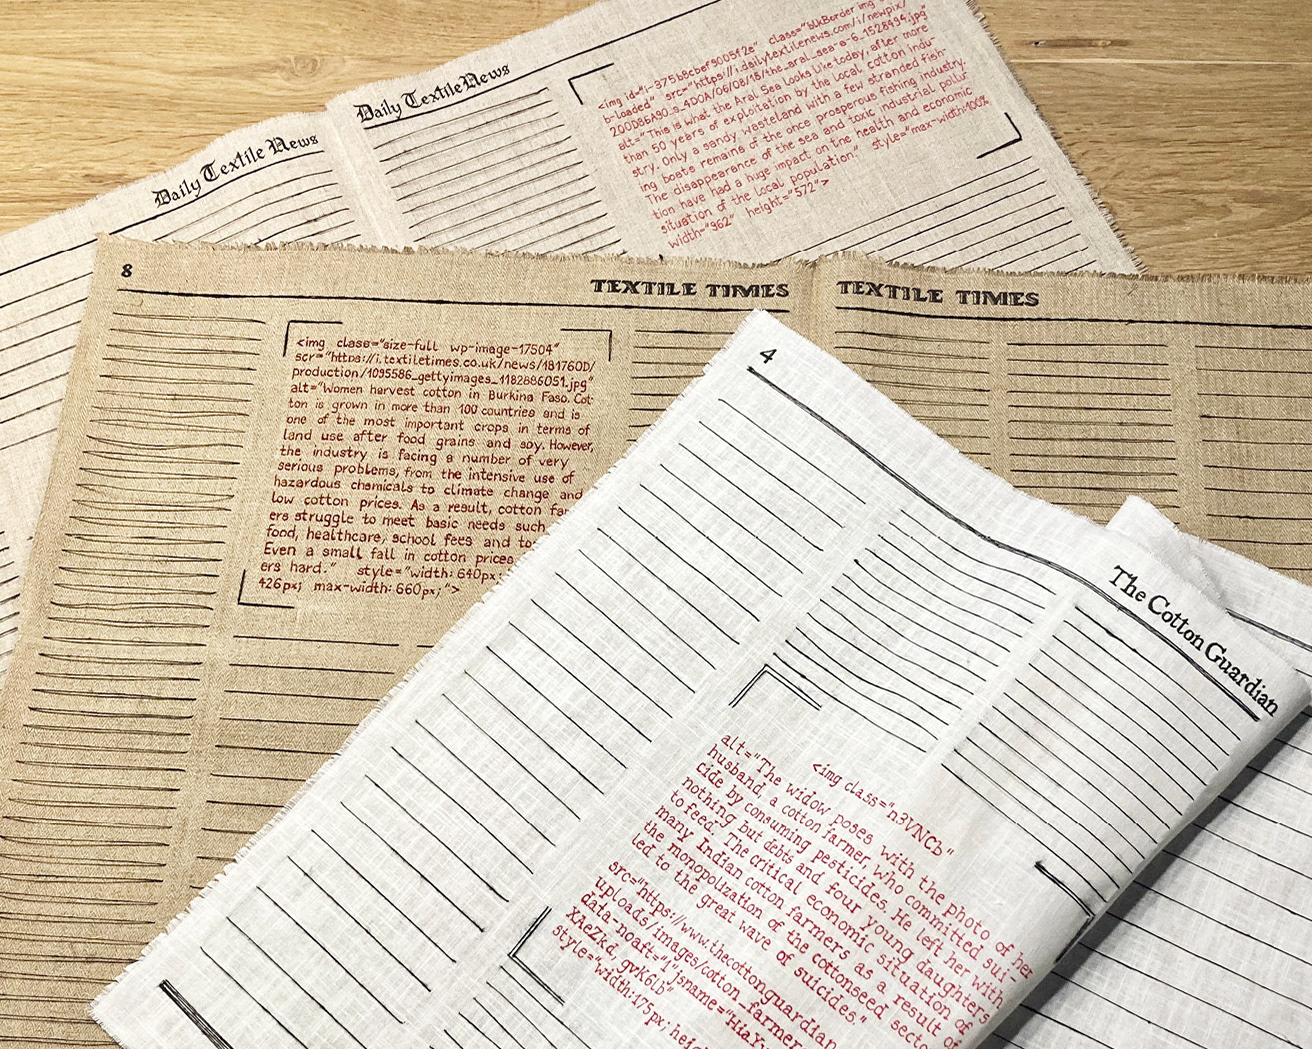 Daily Textile News
Daily Textile News
<img id="i-375b8cbef9005f2e" class="blkBorder img
b-loaded" src="https://i.dailytextilenews.com/i/newpix/
alt="This is what the Aral Sea Looks like today, after more
than 50 years of exploitation by the local cotton indu-
stry. Only a sandy wasteland with a few stranded fish-
ing boats remains of the once prosperous fishing industry.
The disappearance of the sea and toxic industrial pollu-
tion have had a huge impact on the health and economic
situation of the local population." style="max-width:100%
width="962" height="572">
8
TEXTILE TIMES
<img class="size-full wp-image-17504"
scr="https://i.textiletimes.co.uk/news/181760D/
production/1095586_gettyimages_1182886051.jpg"
alt="Women harvest cotton in Burkina Faso. Cot-
ton is grown in more than 100 countries and is
one of the most important crops in terms of
land use after food grains and soy. However,
the industry is facing a number of very
serious problems, from the intensive use of
hazardous chemicals to climate change and
low cotton prices. As a result, cotton far
ers struggle to meet basic needs such
food, healthcare, school fees and to
Even a small fall in cotton prices
ers hard." style="width: 640px;
426px; max-width: 660px;">
TEXTILE TIMES
4
The Cotton Guardian
<img class="n3VNCb"
alt="The widow poses with the photo of her
husband, a cotton farmer, who committed sui-
cide by consuming pesticides. He left her with
nothing but debts and four young daughters
to feed. The critical economic situation of
many Indian cotton farmers as a result of
the monopolization of the cottonseed secto
led to the great wave of suicides."
src="https://www.thecottonguardian
uploads/images/cotton_farmer
data-noaft="1" jsname="HiaYv
XAeZkd, gvK6lb"
style="width:175px; hei